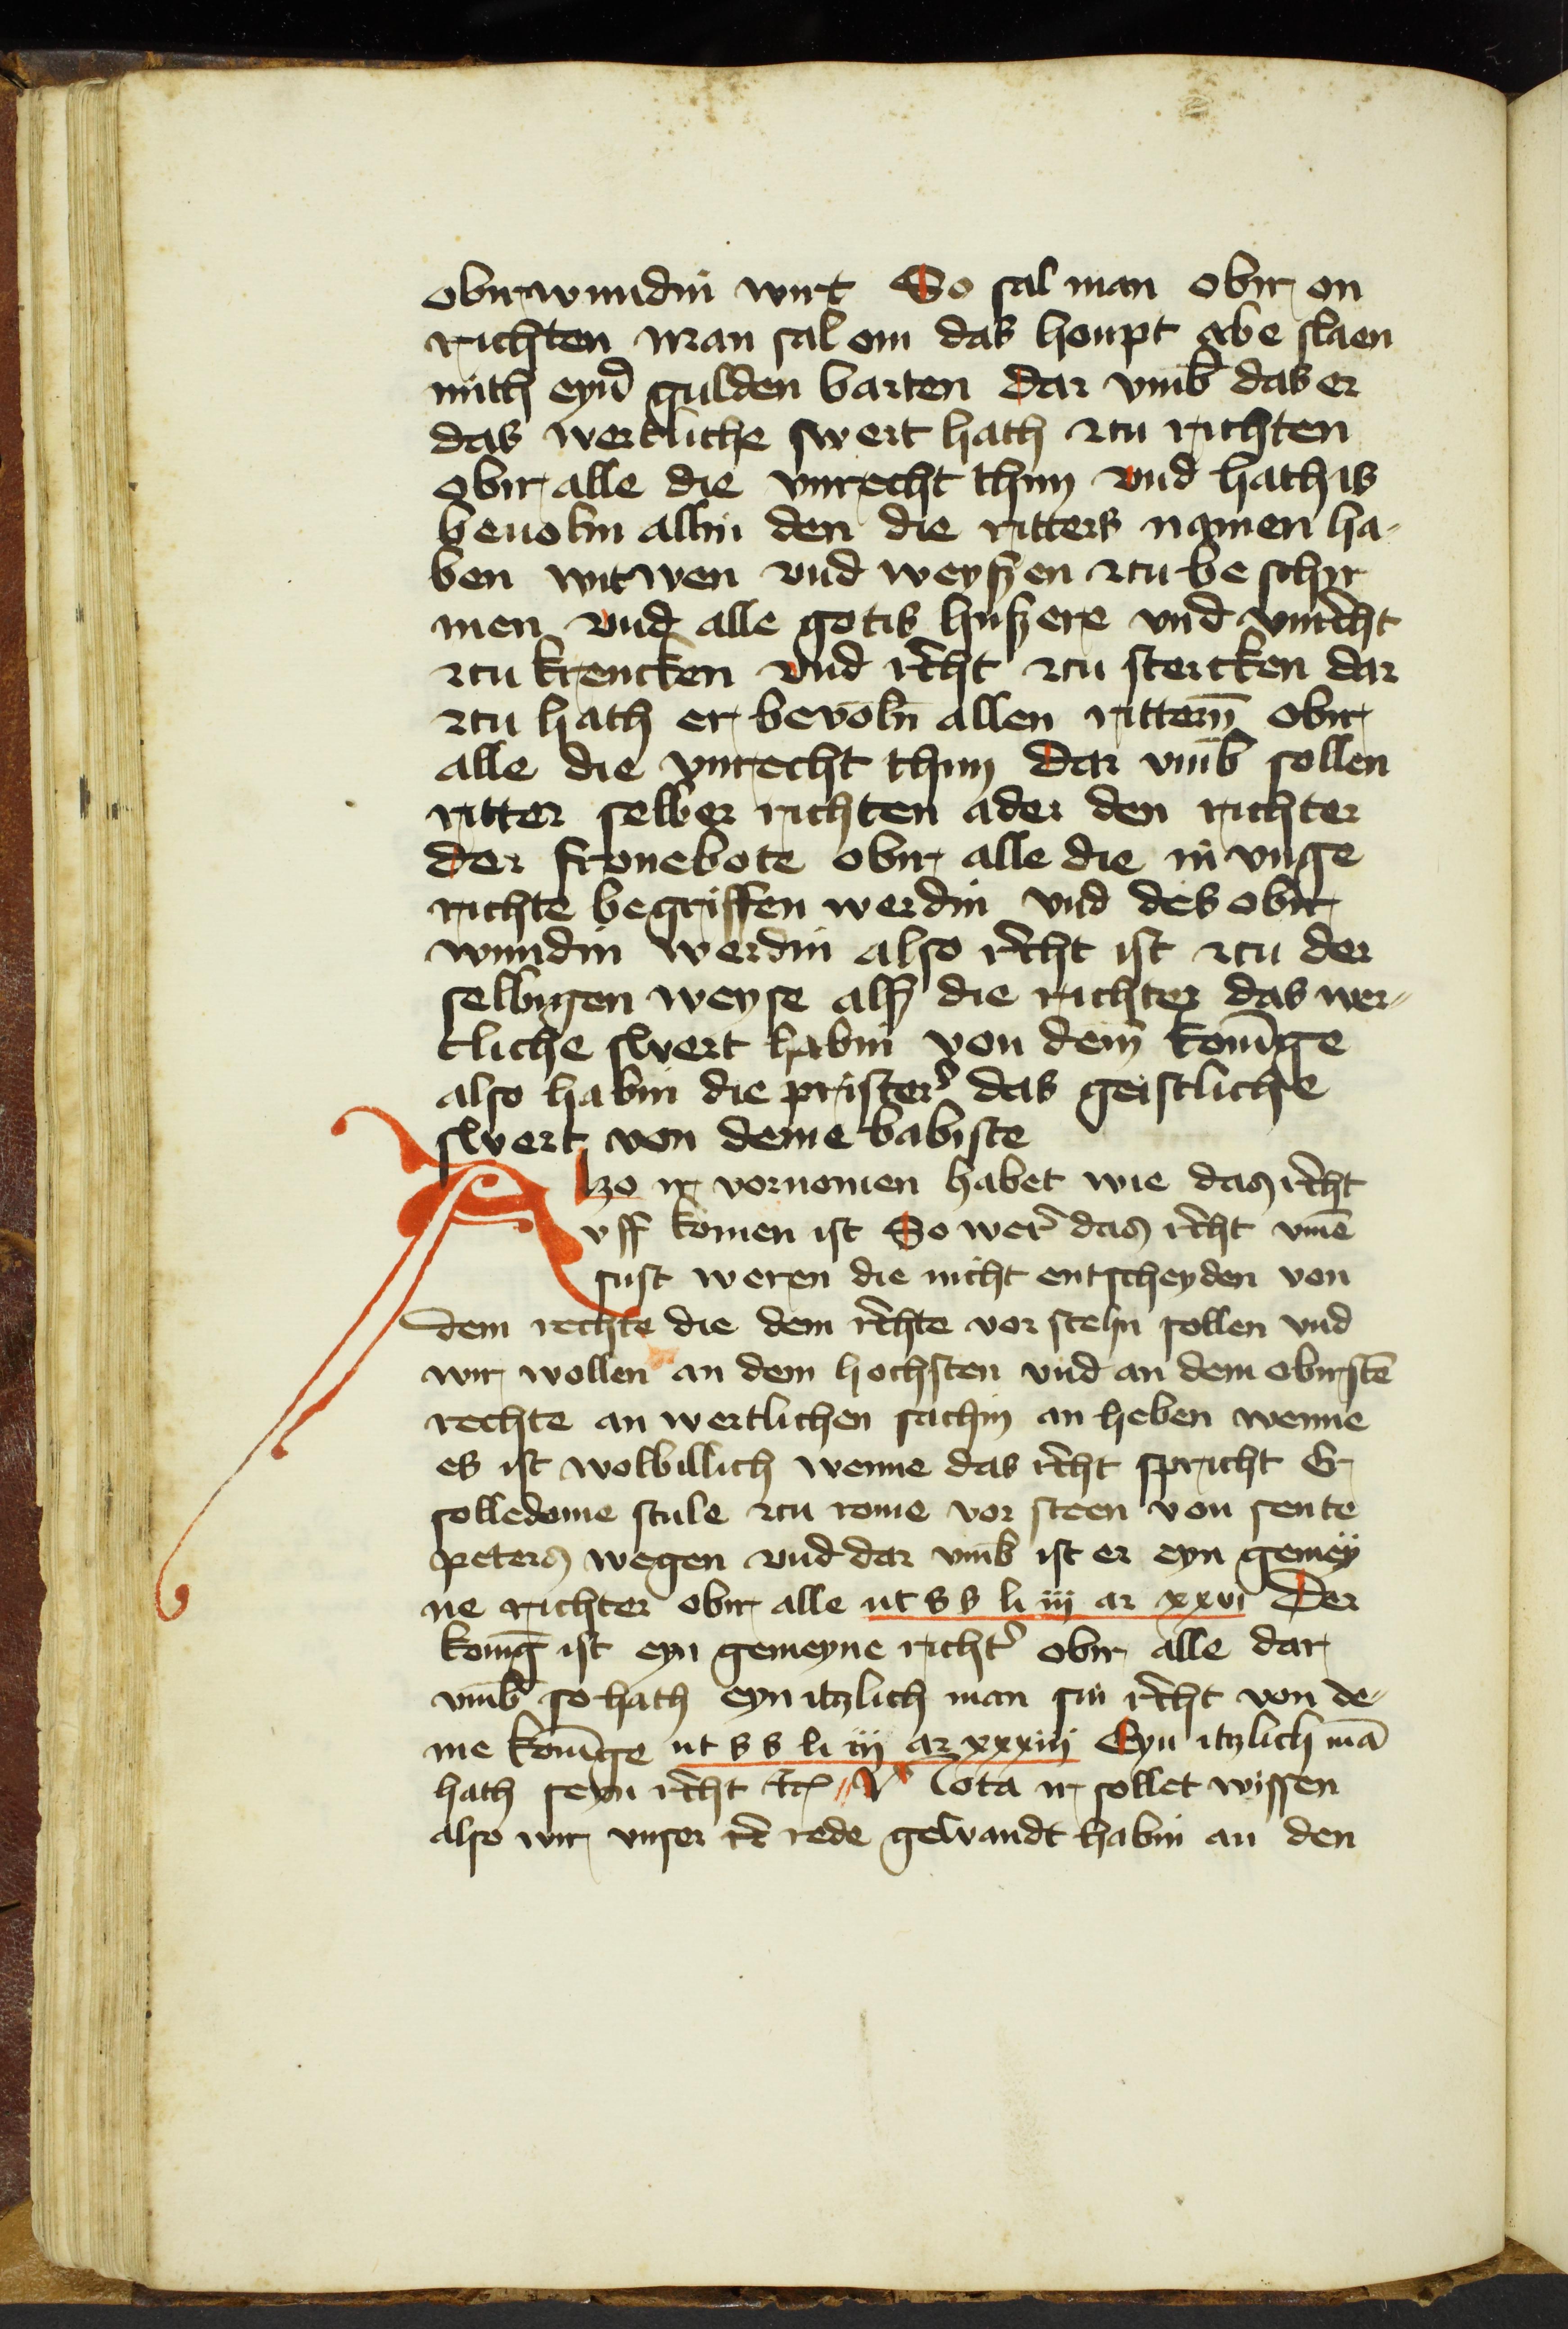 obirwundin wirt So sal man obir on
richten man sal om das houpt abe slaen
mith eynͬ gulden barten dar vmb̄ das er
das wertliche swert hath zcu richten
obir alle die vnrecht thun vnd hath is
beuoln allin den die ritters namen ha-
ben witwen vnd weyszen zcu be schir
men vnd alle gotis huszere vnd vnrc̄ht
zcu krencken vnd rc̄ht zcu stercken dar
zcu hath er bevoln̄ allen rittern̄ obir
alle die vnrecht thun dar vmb̄ sollen
ritter selber richten ader den richter
der fronebote obir alle die in vnge
richte begriffen werdin vnd des obir
wundin werdin also rc̄ht ist zcu der
selbigen weyse alsz die richter das wer-
tliche swert habin von dem konīge
also habin die pristerͬ das geistliche
swert von deme babiste
Alzo ir vornomen habet wie das rc̄ht
vff komen ist So werͬ das rc̄ht vmē
sust weren die nicht entscheyden von
dem rechte die dem rc̄hte vor stehn sollen vnd
wir wollen an dem hochsten vnd an dem obirstē
rechte an wertlichen sachin an heben wenne
es ist wolbillich wenne das rc̄ht spricht Er
solle dome stule zcu rome vor steen von sente
peters wegen vnd dar vmb̄ ist er eyn gemey
ne richter obir alle ut s s li iij ar xxvi Der
koniḡ ist eyn gemeyne richtͬ obir alle dar
vmb̄ so hath eyn itzlich man sin rc̄ht von de-
me konīge ut s s li iij ar xxxiij Eyn itzlich mā
hath seyn rc̄ht etc̄ Nota ir sollet wissen
also wir vnser rc̄ rede gewandt habin an den